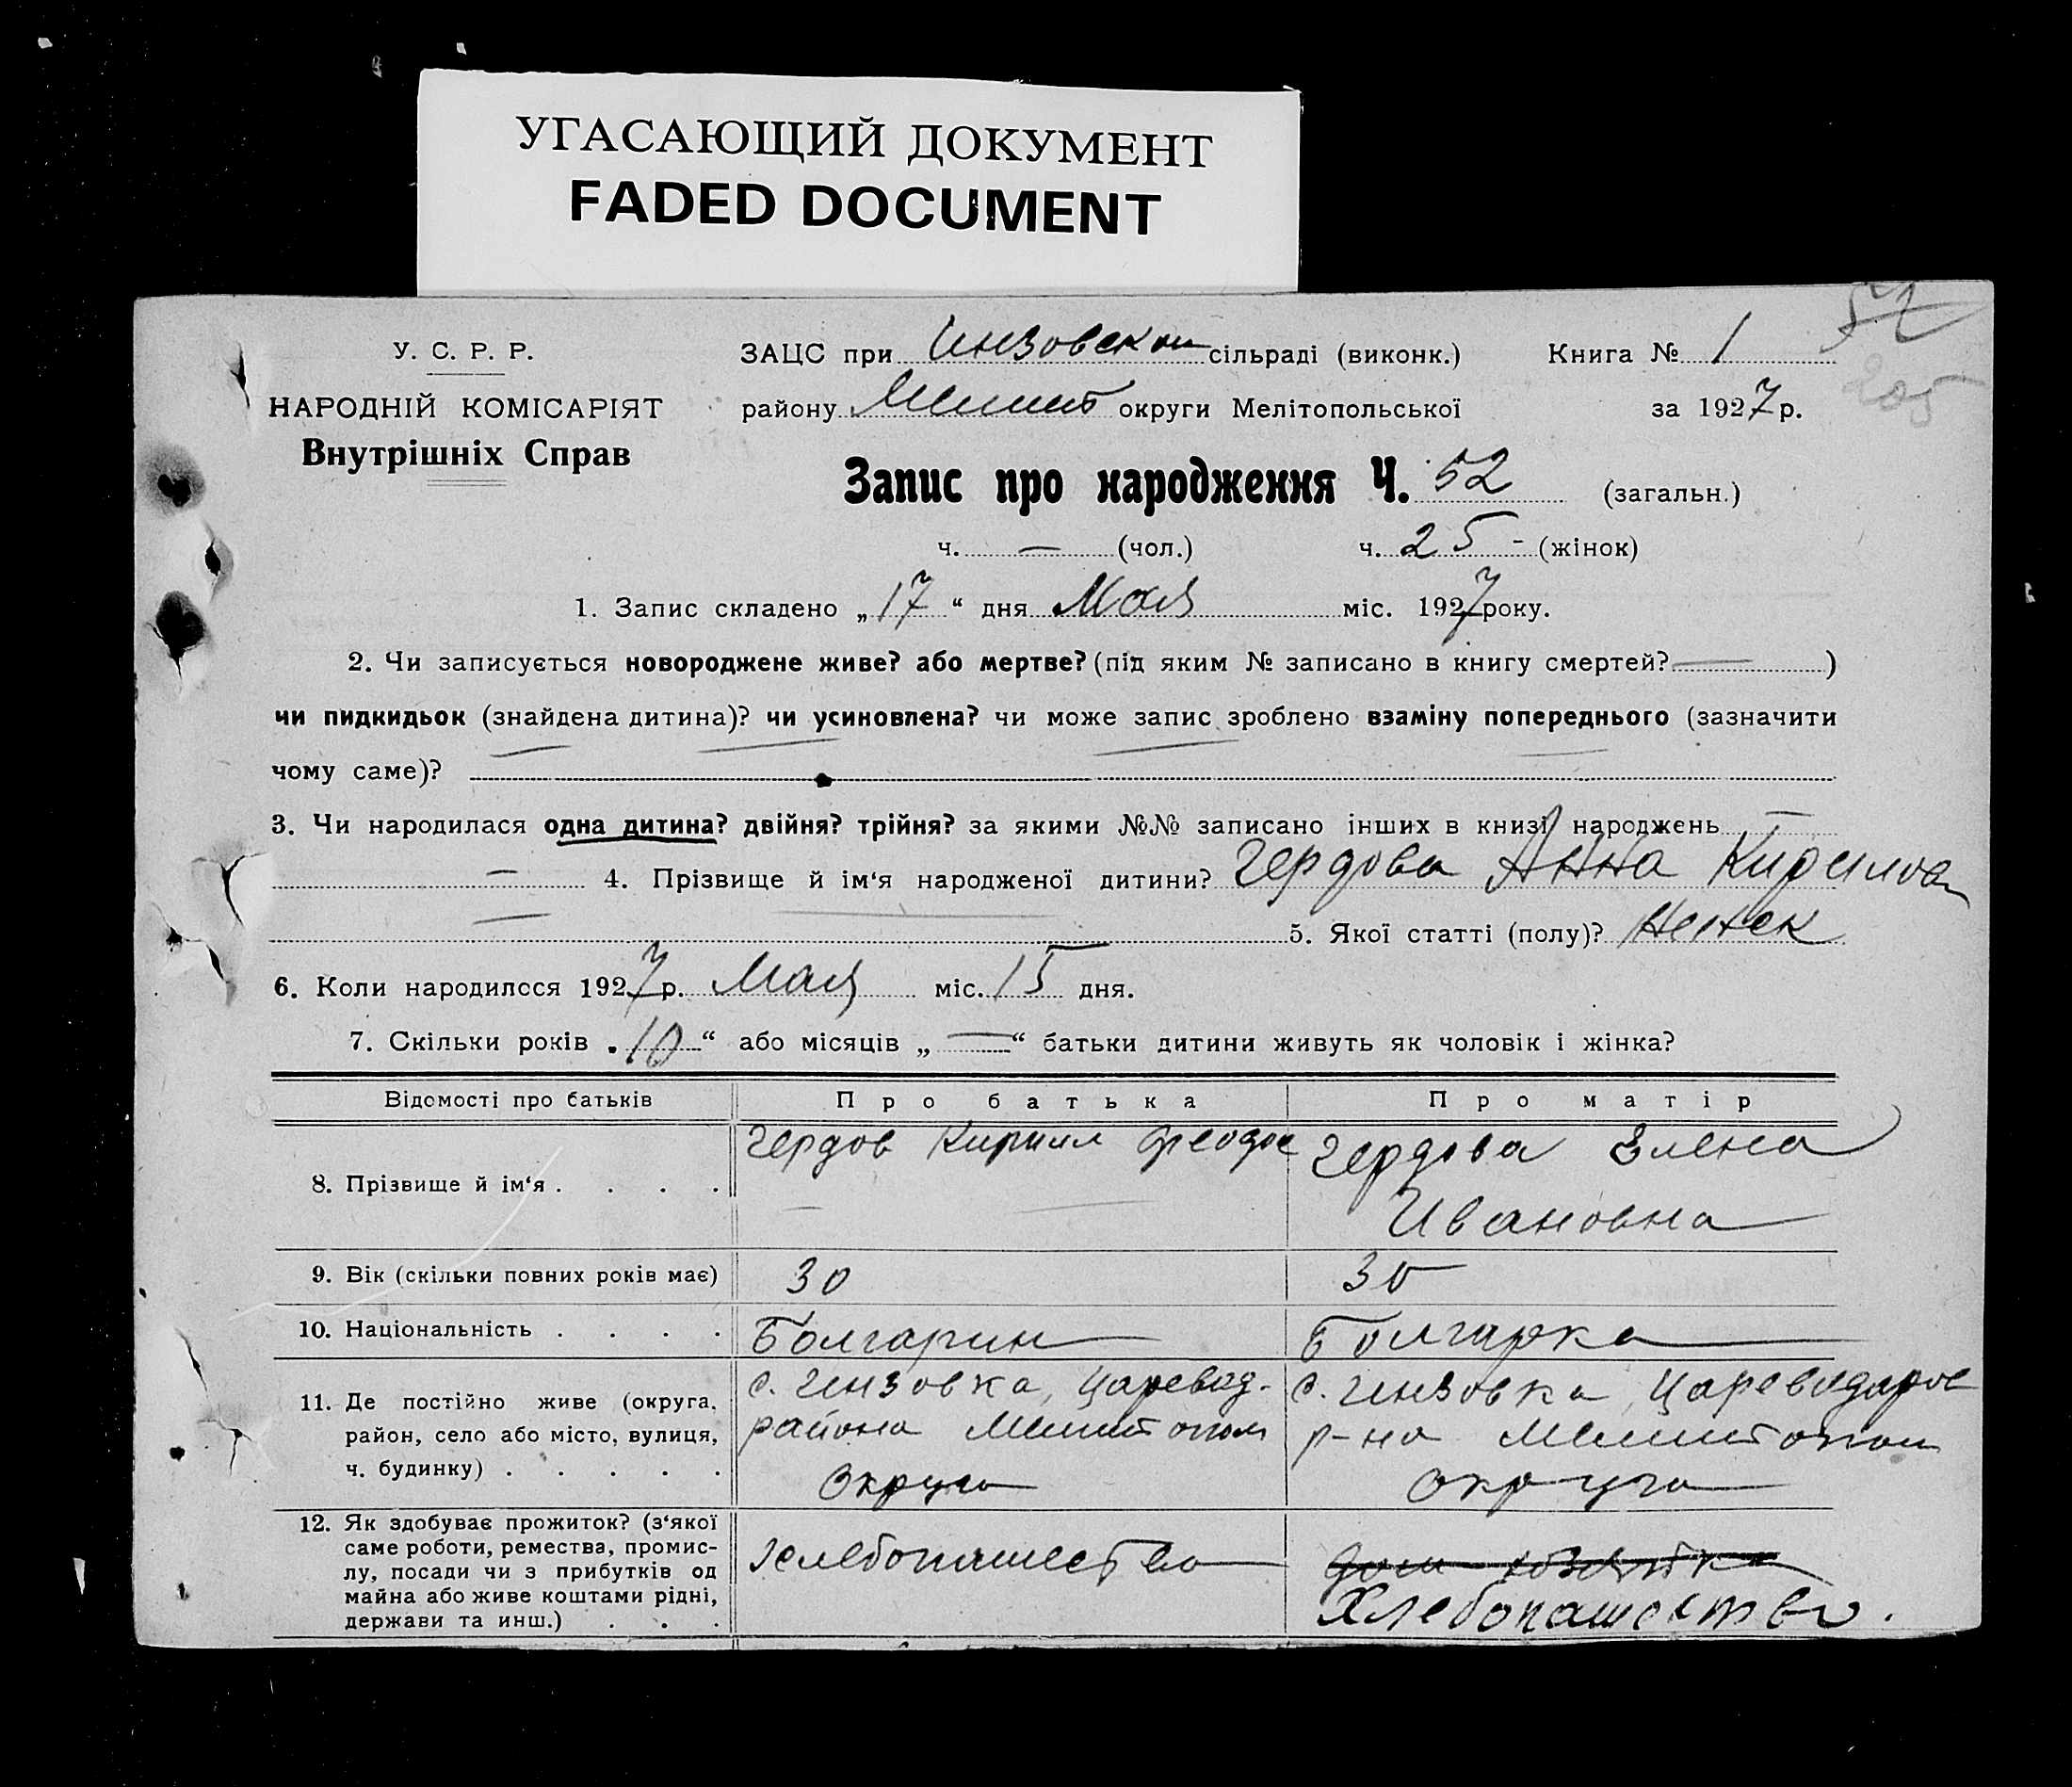 УГАСАЮЩИЙ ДОКУМЕНТ
FADED DOCUMENT
52
205
У. С. Р. Р.
НАРОДНІЙ КОМІСАРІЯТ
Внутрішніх Справ
ЗАЦС при Инзовском сільраді (виконк.) Книга № 1
району Мелит округи Мелітопольської за 1927 р.
Запис про народження Ч. 52 (загальн.)
ч. — (чол.) ч. 25 - (жінок)
1. Запис складено „17“ дня Мая міс. 1927 року.
2. Чи записується новороджене живе? або мертве? (під яким № записано в книгу смертей? — )
чи пидкидьок (знайдена дитина)? чи усиновлена? чи може запис зроблено взаміну попереднього (зазначити
чому саме)?
3. Чи народилася одна дитина? двійня? трійня? за якими №№ записано інших в книзі народжень —
— 4. Прізвище й ім‘я народженої дитини? Гердова Анна Кирилов
— 5. Якої статті (полу)? Женск
6. Коли народилося 1927 р. Мая міс. 15 дня.
7. Скільки років „10“ або місяців „—“ батьки дитини живуть як чоловік і жінка?
Відомості про батьків Про батька Про матір
8. Прізвище й ім‘я . . . . Гердов Кирилл Феодос Гердова Елена
Ивановна
9. Вік (скільки повних років має) 30 30
10. Національність . . . . Болгарин Болгарка
11. Де постійно живе (округа, с. Инзовка, Царевод. с. Инзовка, Цареводаров
район, село або місто, вулиця, района Мелитопол р-на Мелитопол
ч. будинку) . . . . . Округа округа
12. Як здобуває прожиток? (з‘якої
саме роботи, ремества, промис-
лу, посади чи з прибутків од
майна або живе коштами рідні,
держави та инш.) . . .
Хлебопашество
дом хозяйка
Хлебопашество.